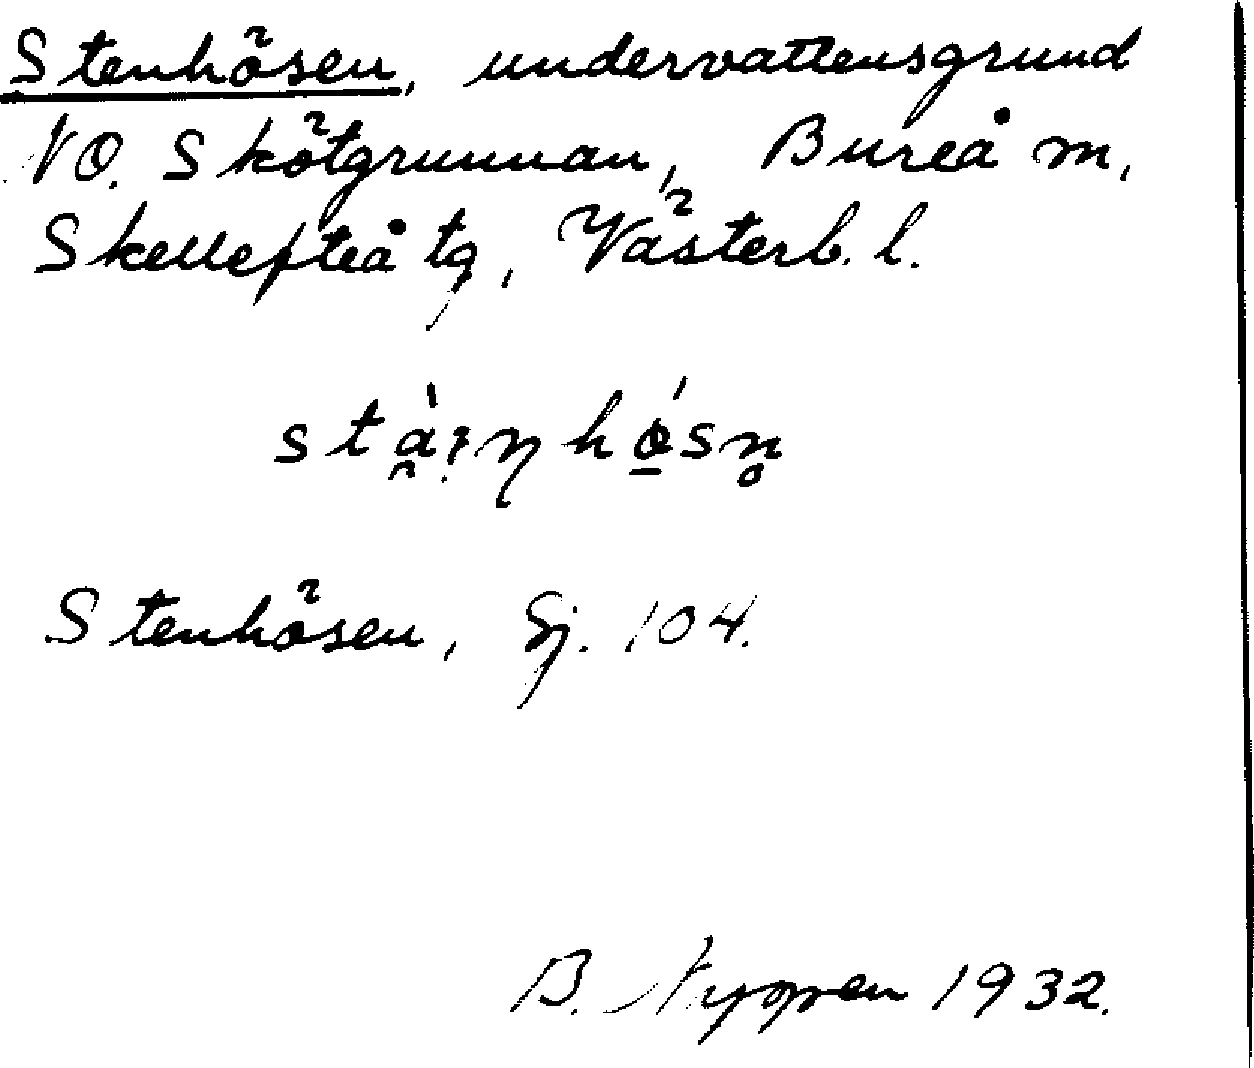 Stenhösen, undervattensgrund
NO. Skötgrunnan, Bureå m,
Skellefteå tg, Västerb. l.
Stenhösen, Sj. 104.
B. 1932.